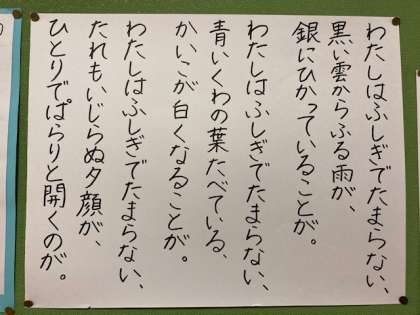 わたしはふしぎでたまらない、
黒い雲からふる雨が、
銀にひかっていることが。
わたしはふしぎでたまらない、
青いくわの葉たべている、
かいこが白くなることが。
わたしはふしぎでたまらない、
たれもいじらぬ夕顔が、
ひとりでぱらりと開くのが。